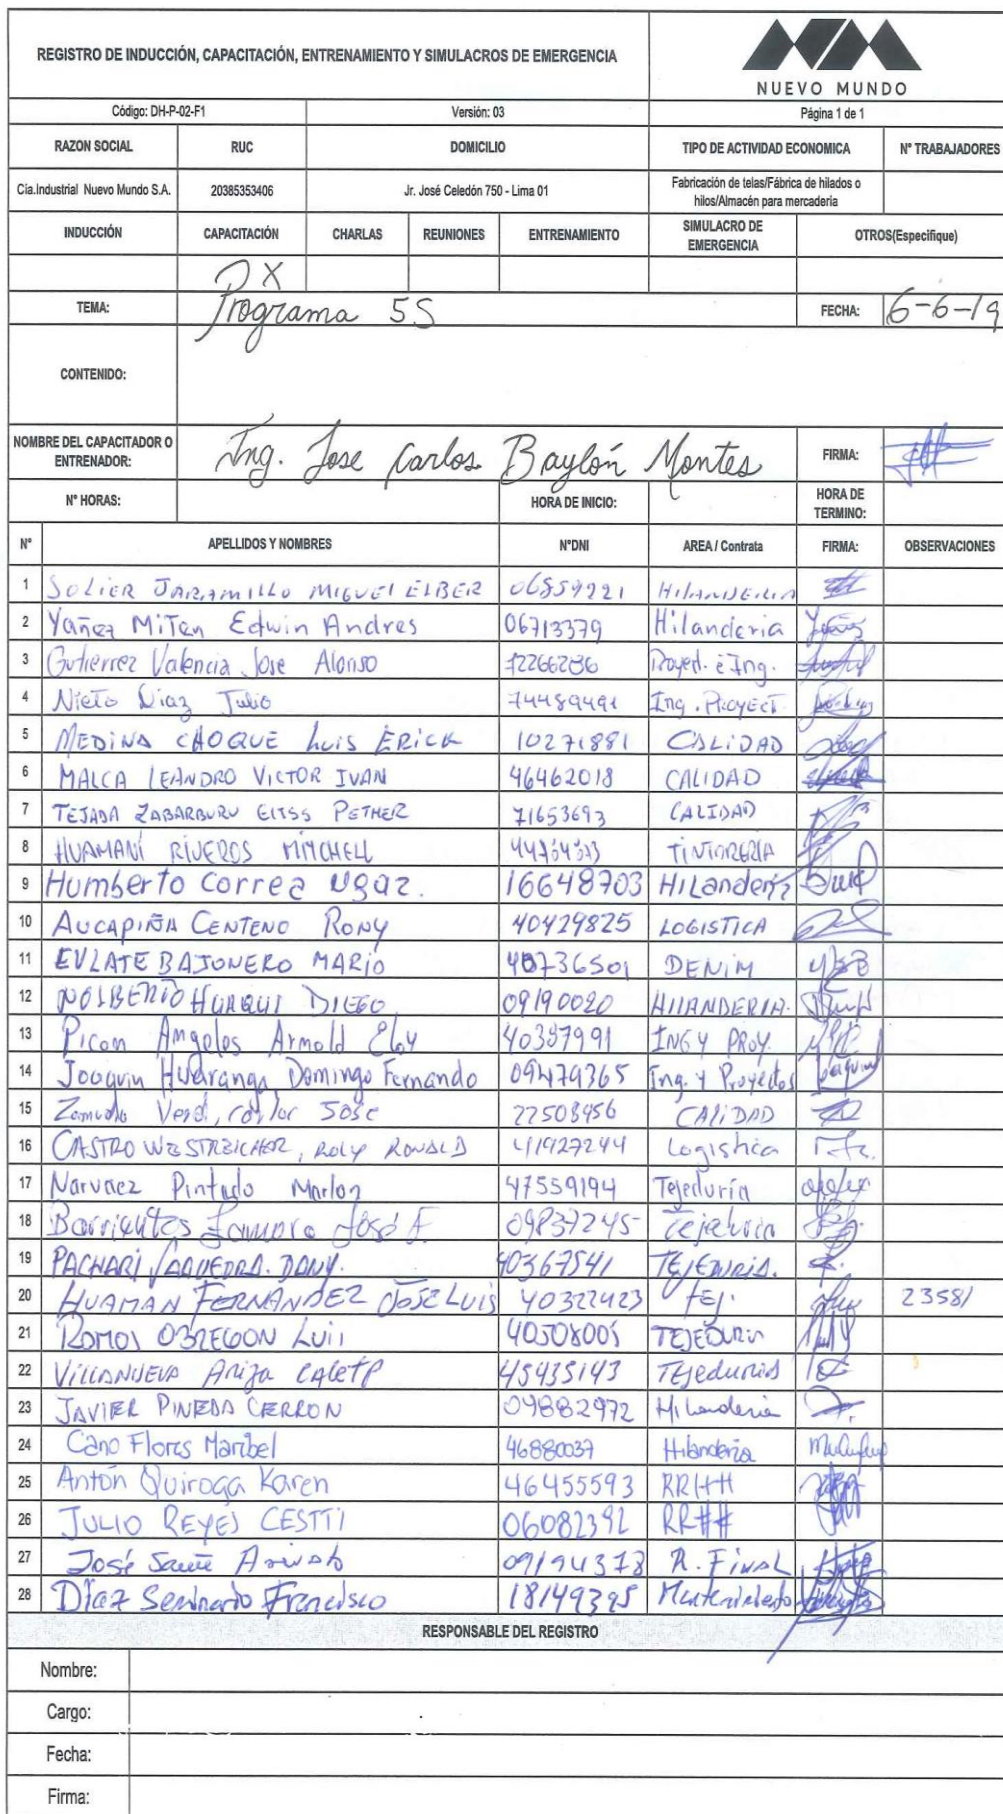 REGISTRO DE INDUCCIÓN, CAPACITACIÓN, ENTRENAMIENTO Y SIMULACROS DE EMERGENCIA
NUEVO MUNDO
Código: DH-P-02-F1 Versión: 03 Página 1 de 1
RAZON SOCIAL RUC DOMICILIO TIPO DE ACTIVIDAD ECONOMICA N° TRABAJADORES
Cia.Industrial Nuevo Mundo S.A. 20385353406 Jr. José Celedón 750 - Lima 01 Fabricación de telas/Fábrica de hilados o
hilos/Almacén para mercaderia
INDUCCIÓN CAPACITACIÓN CHARLAS REUNIONES ENTRENAMIENTO SIMULACRO DE
EMERGENCIA OTROS(Especifique)
X
TEMA: Programa 5S FECHA: 6-6-19
CONTENIDO:
NOMBRE DEL CAPACITADOR O
ENTRENADOR: Ing. Jose Carlos Baylón Montes FIRMA:
N° HORAS: HORA DE INICIO: HORA DE
TERMINO:
N° APELLIDOS Y NOMBRES N°DNI AREA / Contrata FIRMA: OBSERVACIONES
1 SOLIER JARAMILLO MIGUEL ELBER 06859221 HILANDERIA
2 Yañez Miten Edwin Andres 06713379 Hilanderia
3 Gutierrez Valencia Jose Alonso Proyed. e Ing.
4 Nieto Diaz Julio 74489491 Ing. PROYECT.
5 MEDINA CHOQUE LUIS ERICK 10271881 CALIDAD
6 MALCA LEANDRO VICTOR IVAN 46462018 CALIDAD
7 TEJADA ZABARBURU EITSS PETHER 71653693 CALIDAD
8 HUAMANÍ RIVEROS MITCHELL TINTORERIA
9 Humberto Correa Ugaz. 16648703 HiLanderiz
10 AUCAPIÑA CENTENO RONY 40429825 LOGISTICA
11 EULATE BAJONERO MARIO 40736501 DENIM
12 NOLBERTO HUAQUI DIEGO 09190020 HILANDERIA.
13 Picon Angeles Arnold Eloy 40397991 ING Y PROY.
14 Joaquin Huaranga Domingo Fernando 09479365 Ing. Y Proyectos
15 José 22508456 CALIDAD
16 CASTRO WESTREICHER, ROLY RONALD 41927244 Logistica
17 Narvaez Pintado Marlon 47559194 Tejeduría
18 Barrientos José F. 09837245 Tejeduria
19 PACHARI SAAVEDRA. DANY. 40367541 TEJEDURIA.
20 HUAMÁN FERNÁNDEZ JOSE LUIS 40322423 TEJ. 23581
21 RAMOS OBREGON LUIS 40508005 TEJEDURIA
22 VILLANUEVA Ariza CALETP 45435143 TEJedurias
23 JAVIER PINEDA CERRON 09882972 Hilanderia
24 Cano Flores Maribel 46880037 Hilanderia
25 Antón Quiroga Karen 46455593 RRHH
26 JULIO REYES CESTTI 06082392 RRHH
27 José 09194378 R. FINAL
28 Díaz Seminario Francisco 18149395 Mantenimiento
RESPONSABLE DEL REGISTRO
Nombre:
Cargo:
Fecha:
Firma: